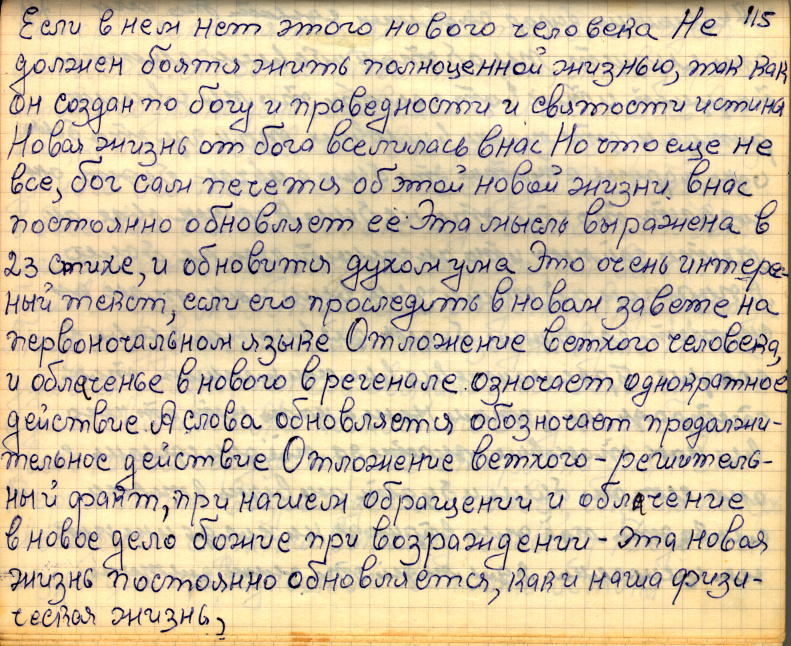 115
Если в нем нет этого нового человека Не
должен боятся жить полноценной жизнью, так как
он создан по богу и праведности и святости истина
Новая жизнь от бога вселилась в нас Но что еще не
все, бог сам печется об этой новой жизни в нас
постоянно обновляет её. Эта мысль выражена в
23 стихе, и обновится духом ума Это очень интере-
ный текст, если его проследить в новом завете на
первоночальном языке Отложение ветхого человека,
и облаченье в нового в регенале означает однократное
действие А слова обновляется обозночает продолжи-
тельное действие Отложение ветхого - решитель-
ный файт, при нашем обращении и облачение
в новое дело божие при возраждении - эта новая
жизнь постоянно обновляется, как и наша физи-
ческая жизнь,